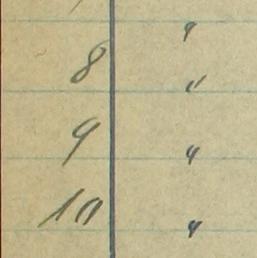 "
8 "
9 "
10 "